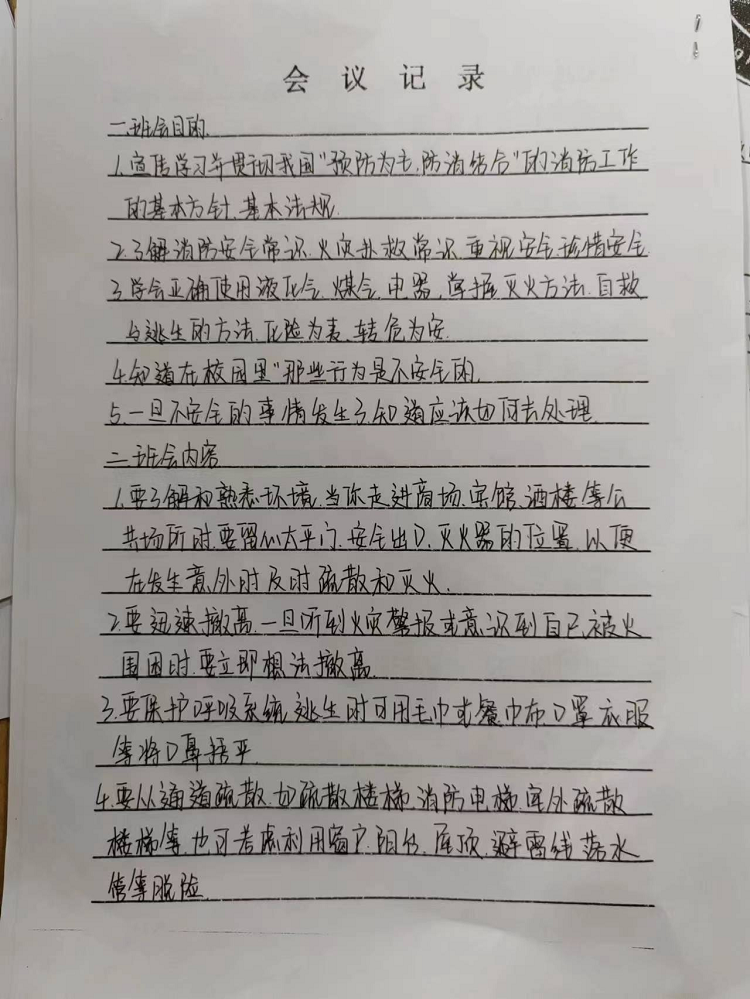 会议记录
一班会目的
1.宣传学习并贯彻我国"预防为主,防消结合"的消防工作
的基本方针.基本法规.
2.了解消防安全常识.火灾扑救常识.重视安全.珍惜安全
3.学会正确使用液化气.煤气.电器,掌握灭火方法.自救
与逃生的方法.化险为夷.转危为安.
4.知道在校园里"那些行为是不安全的.
5.一旦不安全的事情发生了知道应该如何去处理.
二班会内容
1.要了解和熟悉环境.当你走进商场.宾馆.酒楼等公
共场所时.要留心太平门.安全出口.灭火器的位置.以便
在发生意外时及时疏散和灭火.
2.要迅速撤离.一旦听到火灾警报或意识到自己被火
围困时.要立即想法撤离.
3.要保护呼吸系统.逃生时可用毛巾或餐巾布口罩衣服
等将口鼻捂平.
4.要从通道疏散.如疏散楼梯.消防电梯.室外疏散
楼梯等.也可考虑利用窗户.阳台.屋顶.避雷线落水
管等脱险.